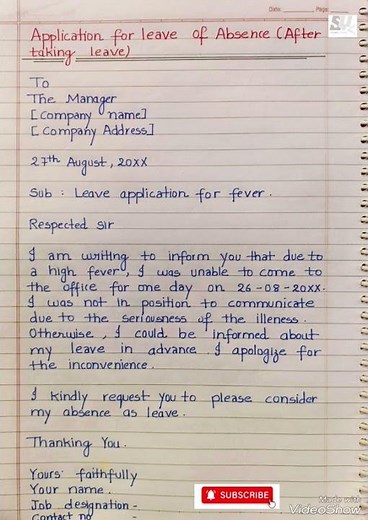 Date: Page:
Application for leave of Absence (After
taking leave)
To
The Manager
[Company name]
[Company Address]
27th August, 20XX
Sub : Leave application for fever.
Respected Sir
I am writing to inform you that due to
a high fever, I was unable to come to
the office for one day on 26-08-20XX.
I was not in position to communicate
due to the seriousness of the illeness.
Otherwise, I could be informed about
my leave in advance. I apologize for
the inconvenience.
I kindly request you to please consider
my absence as leave.
Thanking You.
Yours faithfully
Your name.
Job designation-
Contact no
SUBSCRIBE
Made with
VideoShow